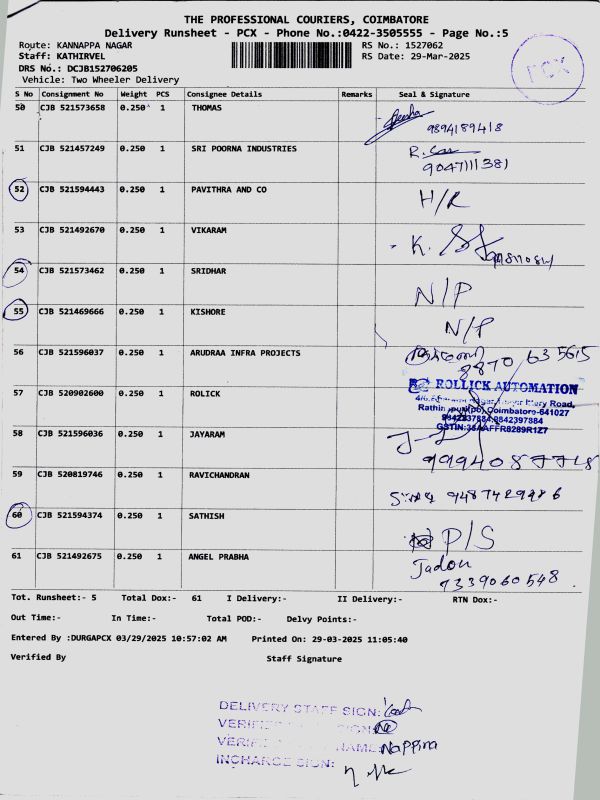 THE PROFESSIONAL COURIERS, COIMBATORE
Delivery Runsheet - PCX - Phone No.:0422-3505555 - Page No.:5
Route: KANNAPPA NAGAR RS No.: 1527062
Staff: KATHIRVEL RS Date: 29-Mar-2025
DRS No.: DCJB152706205
Vehicle: Two Wheeler Delivery
PCX
S No Consignment No Weight PCS Consignee Details Remarks Seal & Signature
50 CJB 521573658 0.250 1 THOMAS
9894189418
51 CJB 521457249 0.250 1 SRI POORNA INDUSTRIES R.
9047111381
52 CJB 521594443 0.250 1 PAVITHRA AND CO H/R
53 CJB 521492670 0.250 1 VIKARAM K.
54 CJB 521573462 0.250 1 SRIDHAR N/P
55 CJB 521469666 0.250 1 KISHORE N/P
56 CJB 521596037 0.250 1 ARUDRAA INFRA PROJECTS
8870 635615
57 CJB 520902600 0.250 1 ROLICK ROLLICK AUTOMATION
Road,
Coimbatore-641027
9842397884
58 CJB 521596036 0.250 1 JAYARAM
9994087718
59 CJB 520819746 0.250 1 RAVICHANDRAN 9487429986
60 CJB 521594374 0.250 1 SATHISH P/S
61 CJB 521492675 0.250 1 ANGEL PRABHA
9339060548
Tot. Runsheet:- 5 Total Dox:- 61 I Delivery:- II Delivery:- RTN Dox:-
Out Time:- In Time:- Total POD:- Delvy Points:-
Entered By :DURGAPCX 03/29/2025 10:57:02 AM Printed On: 29-03-2025 11:05:40
Verified By Staff Signature
DELIVERY STAFF SIGN:
INCHARGE SIGN: